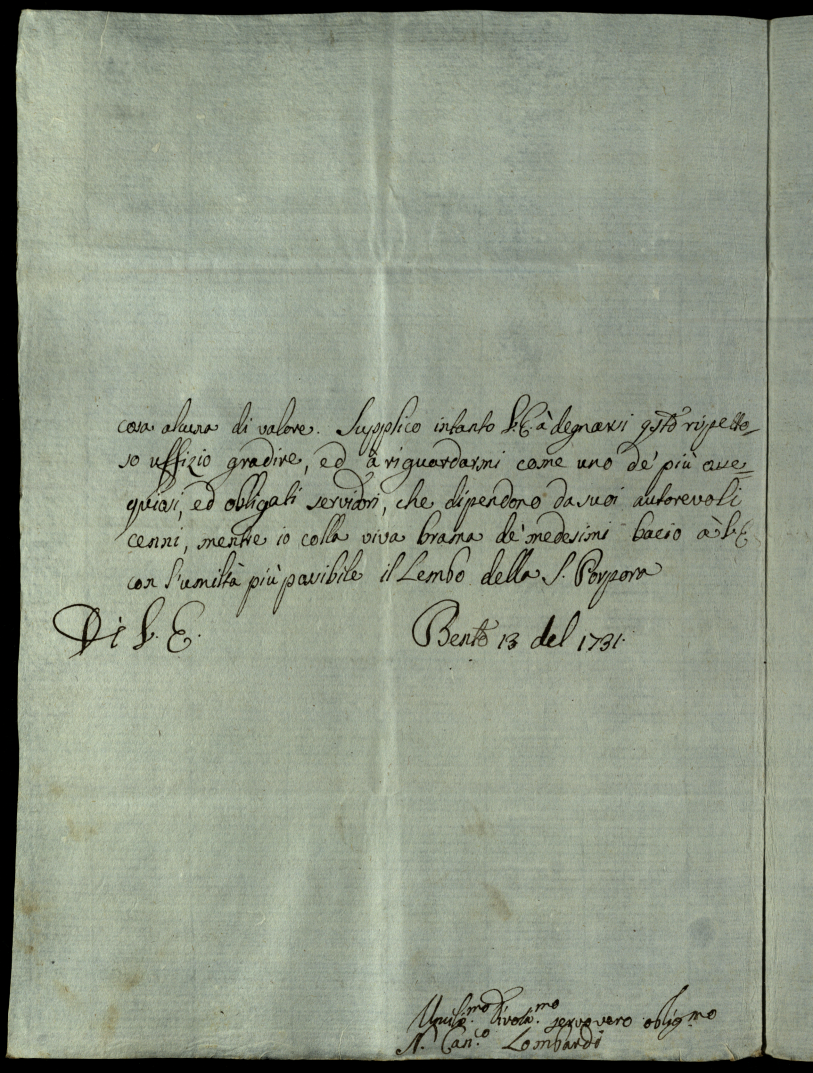 cosa alcuna di valore. Supplico intanto V.E. à degnarsi qsto rispetto=
so uffizio gradire, ed à riguardarmi come uno de' più osse=
quiosi, ed obligati servidori, che dipendono da suoi autorevoli
cenni, mentre io colla viva brama de' medesimi bacio à V.E.
con l'umiltà più possibile il Lembo della S. Porpora
Di V. E. Bento 13 del 1731.
Umilis.mo Divotis.mo servo vero oblig.mo
N. Can.co Lombardi